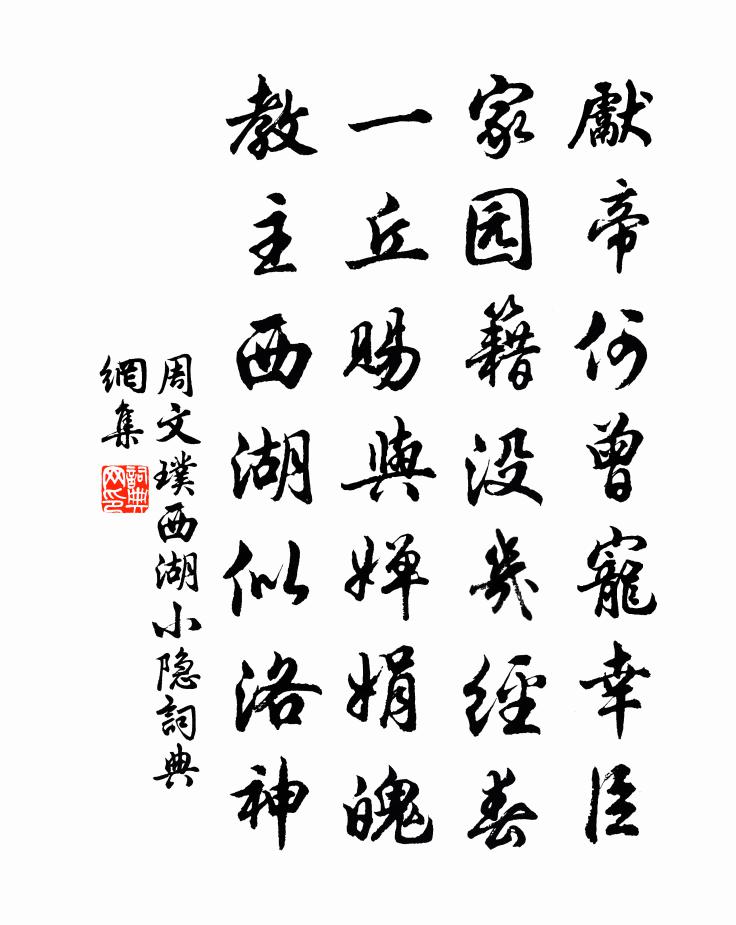 獻帝何曾寵幸臣
家园籍没幾經春
一丘賜與嬋娟魄
教主西湖似洛神
周文璞西湖小隐詞典
網集
詞典網印